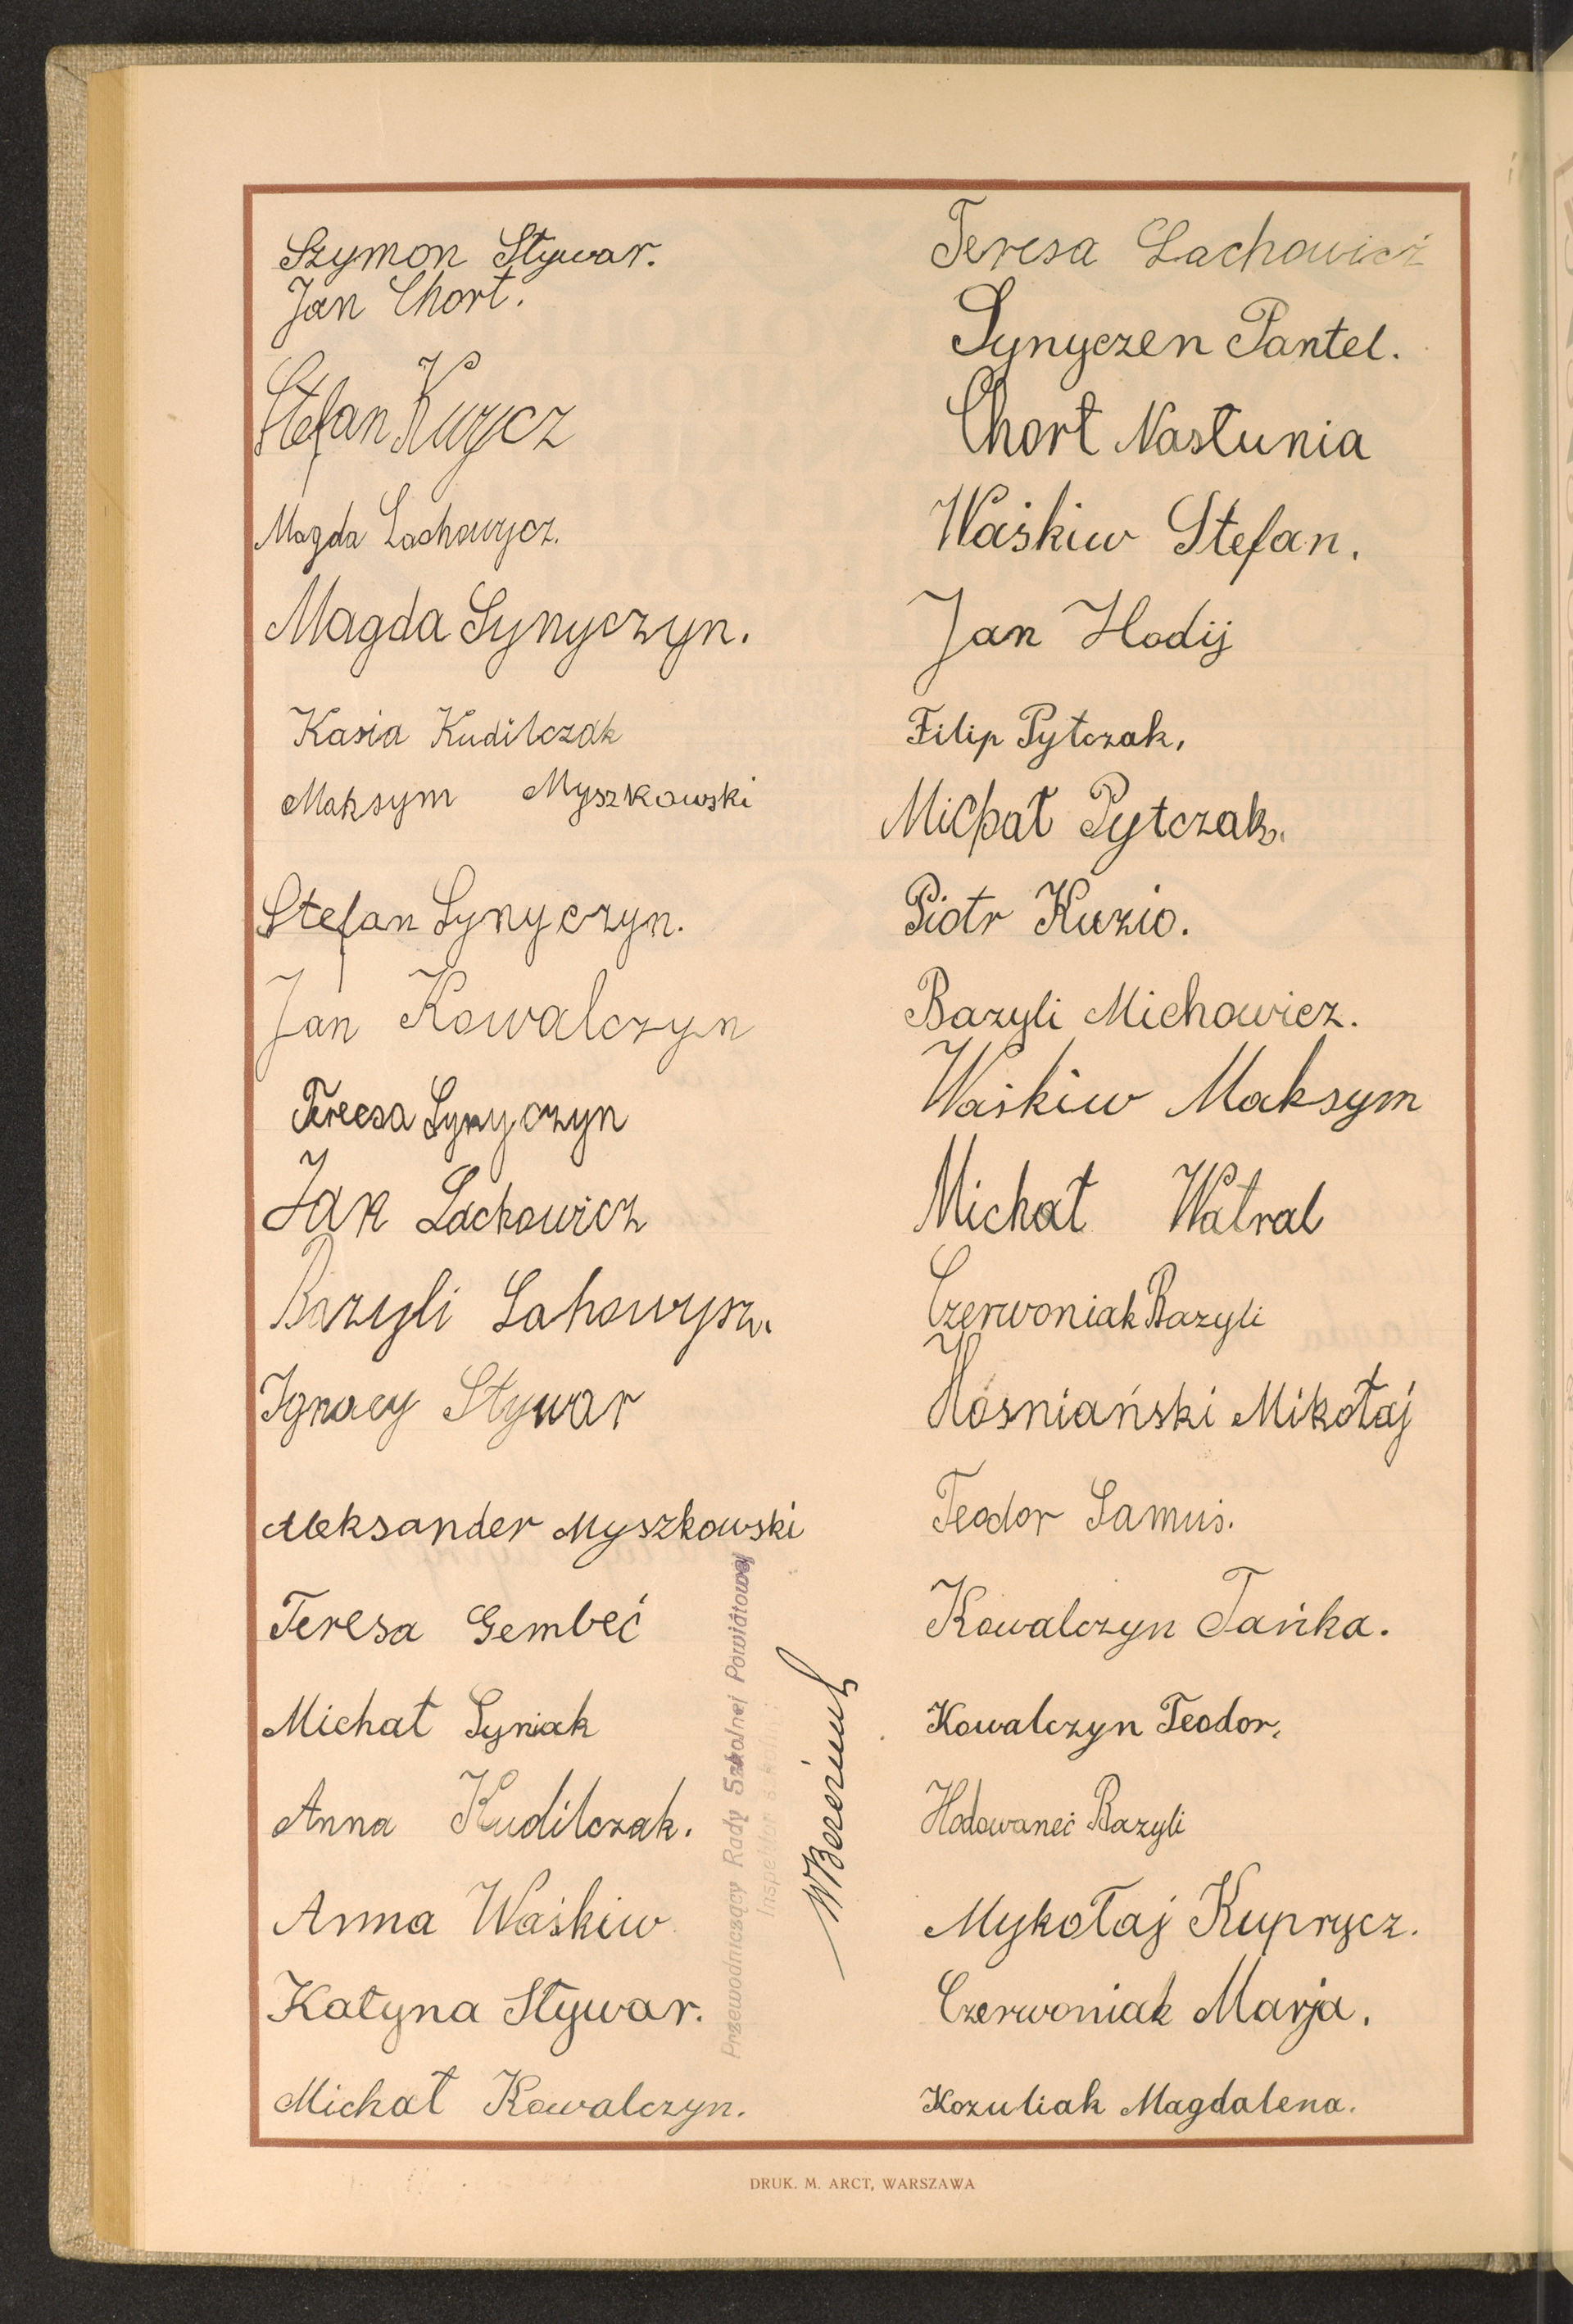 Szymon Stywar.
Jan Chort.
Stefan Kuzicz
Magda Lachowycz.
Magda Synyczyn.
Kasia Kudilczak
Maksym Myszkowski
Stefan Synyczyn.
Jan Kowalczyn
Tereesa Synyczyn
Jan Lachowicz
Bazyli Lahowysz.
Ignacy Stywar
Aleksander Myszkowski
Teresa Gembeć
Michał Syniak
Anna Kudilczak.
Anna Waśkiw
Katyna Stywar.
Michał Kowalczyn.
Przewodniczący Rady Szkolnej Powiatowej
Inspektor szkolny
Teresa Lachowicz
Synyczen Pantel.
Chort Nastunia
Waśkiw Stefan.
Jan Hodij
Filip Pytczak,
Michał Pytczak.
Piotr Kuzio.
Bazyli Michowicz.
Waśkiw Maksym
Michał Watral
Czerwoniak Bazyli
Hośniański Mikołaj
Teodor Samuś.
Kowalczyn Tańka.
Kowalczyn Teodor,
Hodowaneć Bazyli
Mykołaj Kuprycz.
Czerwoniak Marja.
Kozuliak Magdalena.
DRUK. M. ARCT, WARSZAWA